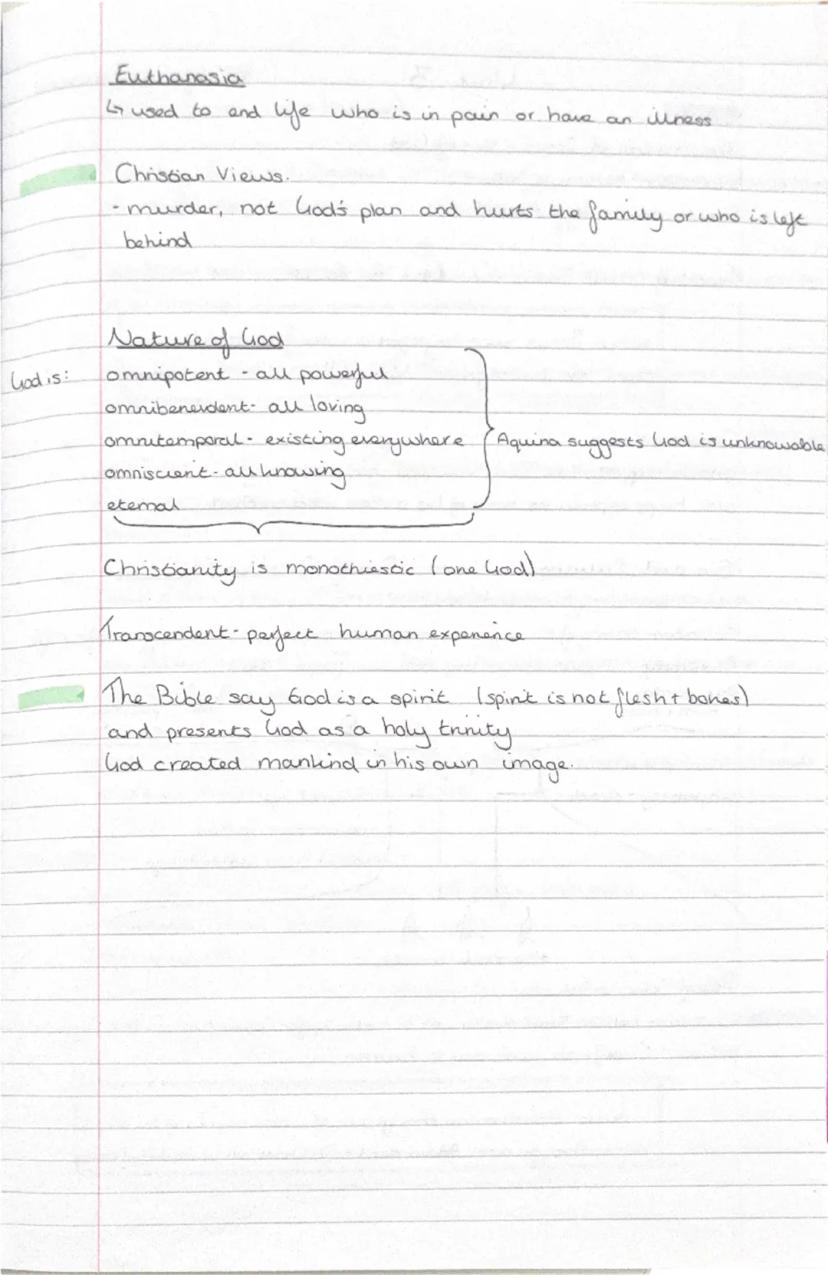 Euthanasia
↳ used to end life who is in pain or have an illness
Christian Views.
- murder, not God's plan and hurts the family or who is left
behind
Nature of God
God is: omnipotent - all powerful
omnibenevolent - all loving
omnitemporal - existing everywhere
Aquina suggests God is unknowable
omniscient - all knowing
eternal
Christianity is monothiestic (one God)
Transcendent - perfect human experience
The Bible say God is a spirit (spirit is not flesh + bones)
and presents God as a holy trinity
God created mankind in his own image.